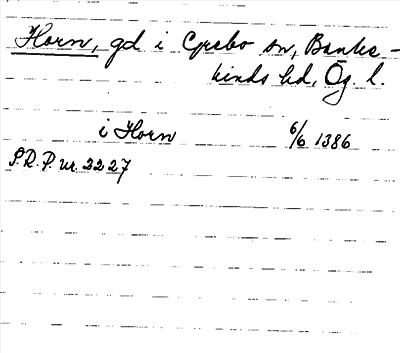 Horn, gd i Grebo sn, Banke-
kinds hd, Ög l.
i Horn 6/6 1386
S.R.P. nr. 2227